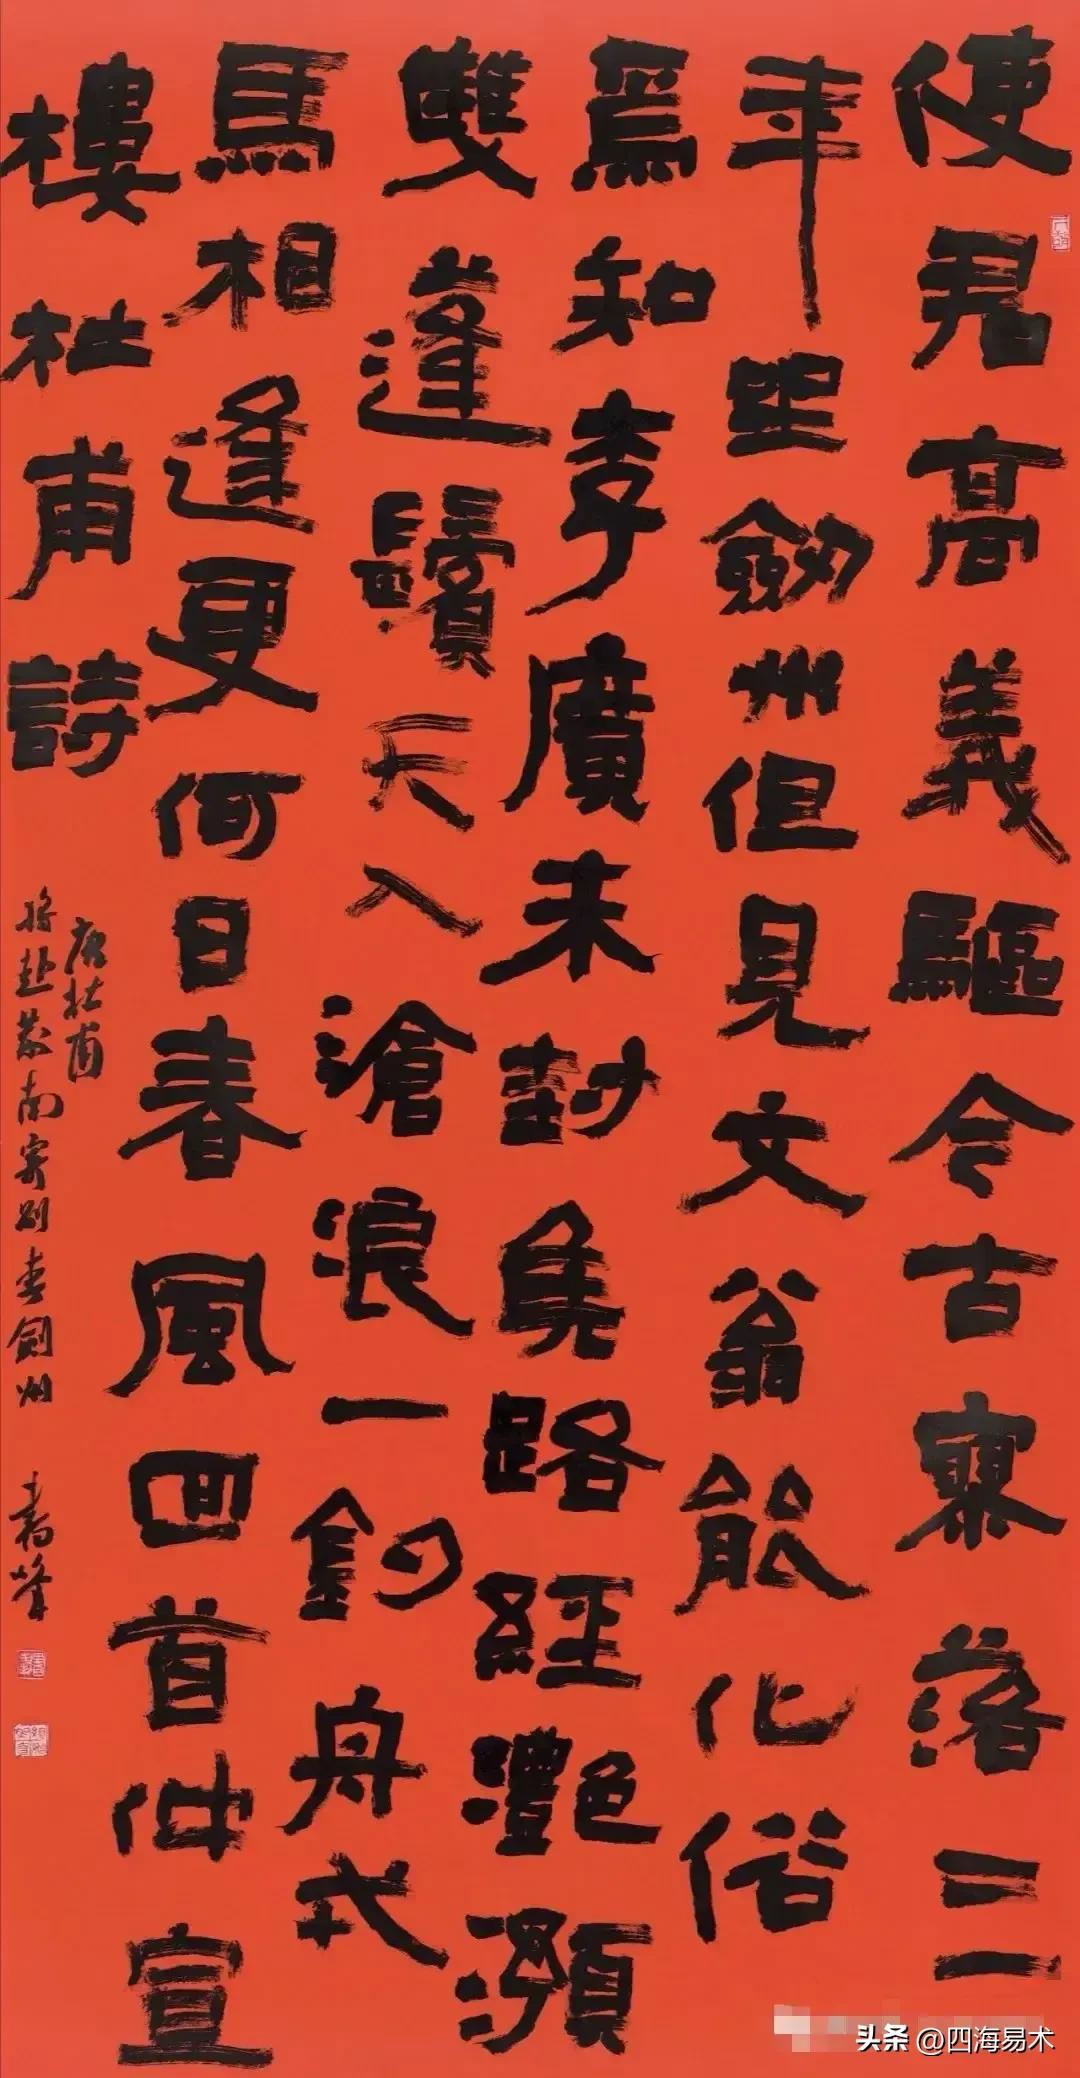 使君高義驅今古寥落三
年坐劒州但見文翁能化俗
焉知李廣未封侯路經灩澦
雙蓬鬢天入滄浪一釣舟戎
馬相逢更何日春風回首仲宣
樓杜甫詩
唐杜甫
將赴荊南寄別李劍州 峰
头条 @四海易术